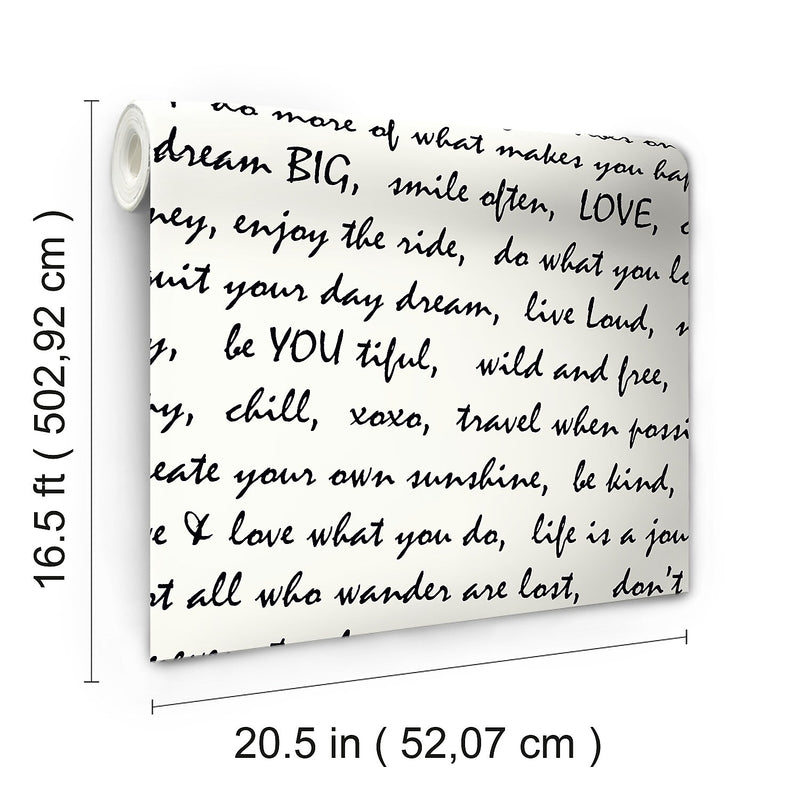 do more of what makes you hap
dream BIG, smile often, LOVE,
ney, enjoy the ride, do what you lo
suit your day dream, live Loud,
y, be YOU tiful, wild and free,
py, chill, xoxo, travel when possi
eate your own sunshine, be kind,
e & love what you do, life is a jou
ot all who wander are lost, don't
16.5 ft ( 502,92 cm )
20.5 in ( 52,07 cm )